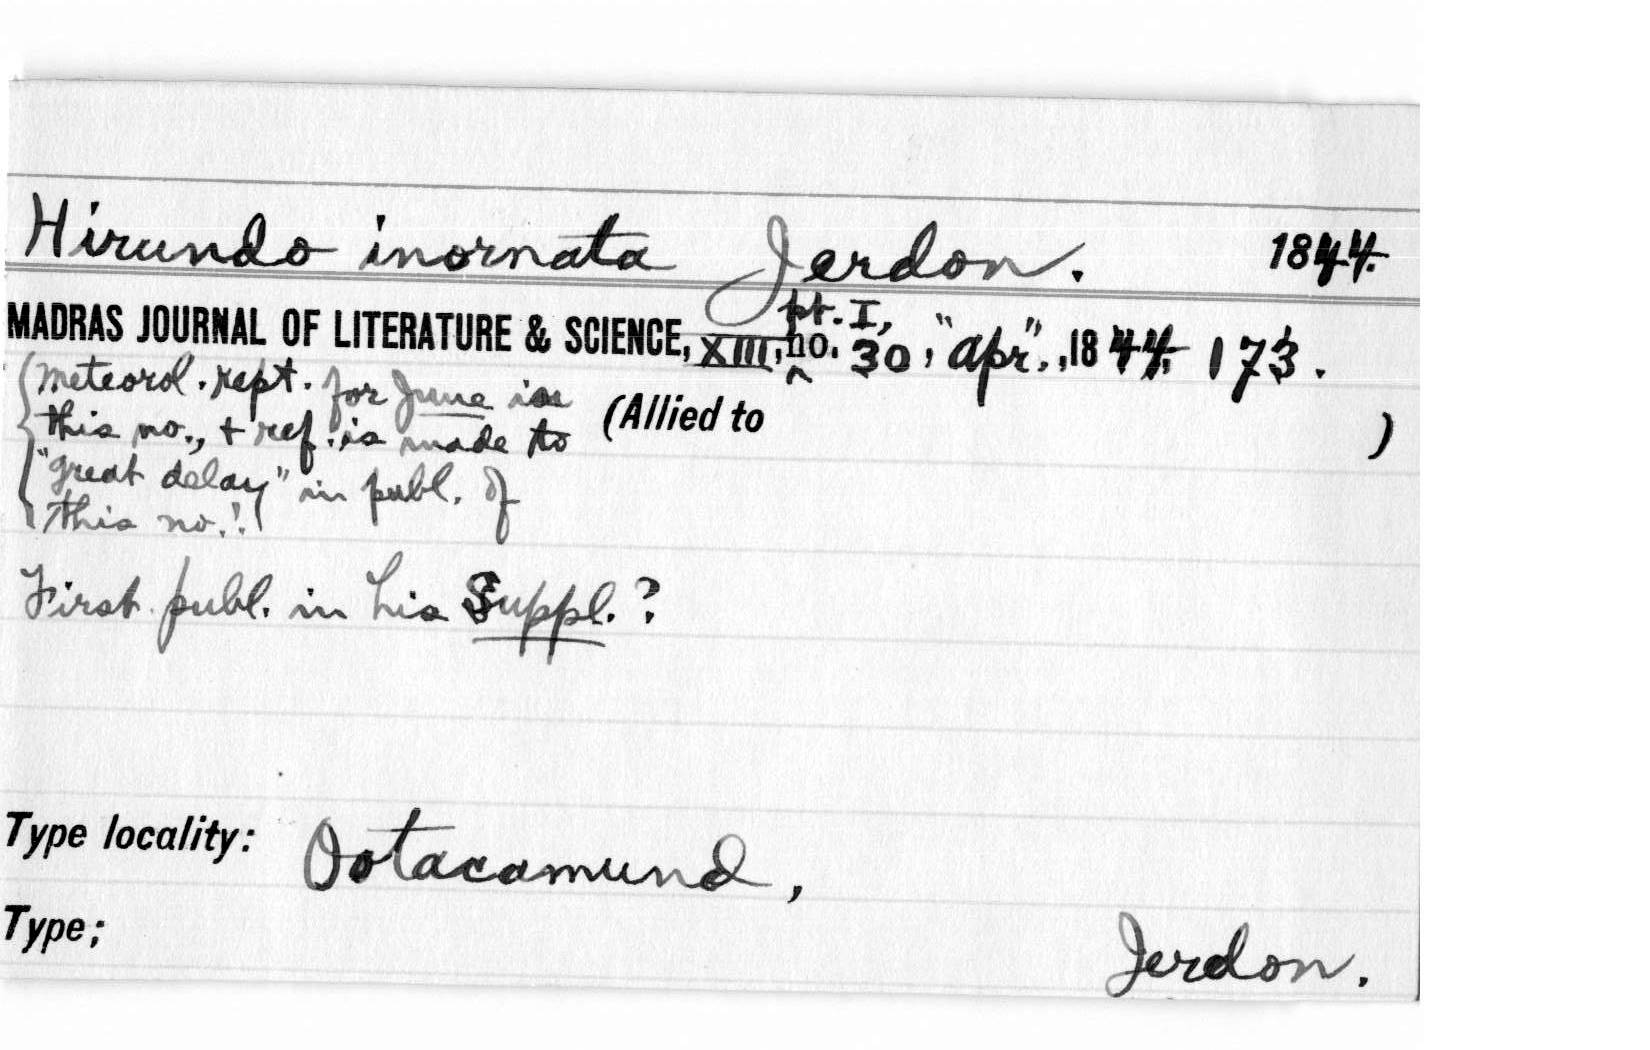 Hirundo inornata Jerdon. 1844.
MADRAS JOURNAL OF LITERATURE & SCIENCE, XIII, pt. I, no. 30, "apr"., 1844, 173.
(Allied to )
Meteorol. rept. for June in
this no., + ref. is made to
"great delay" in publ. of
this no.!
First publ. in his Suppl.?
Type locality: Ootacamund,
Type; Jerdon.